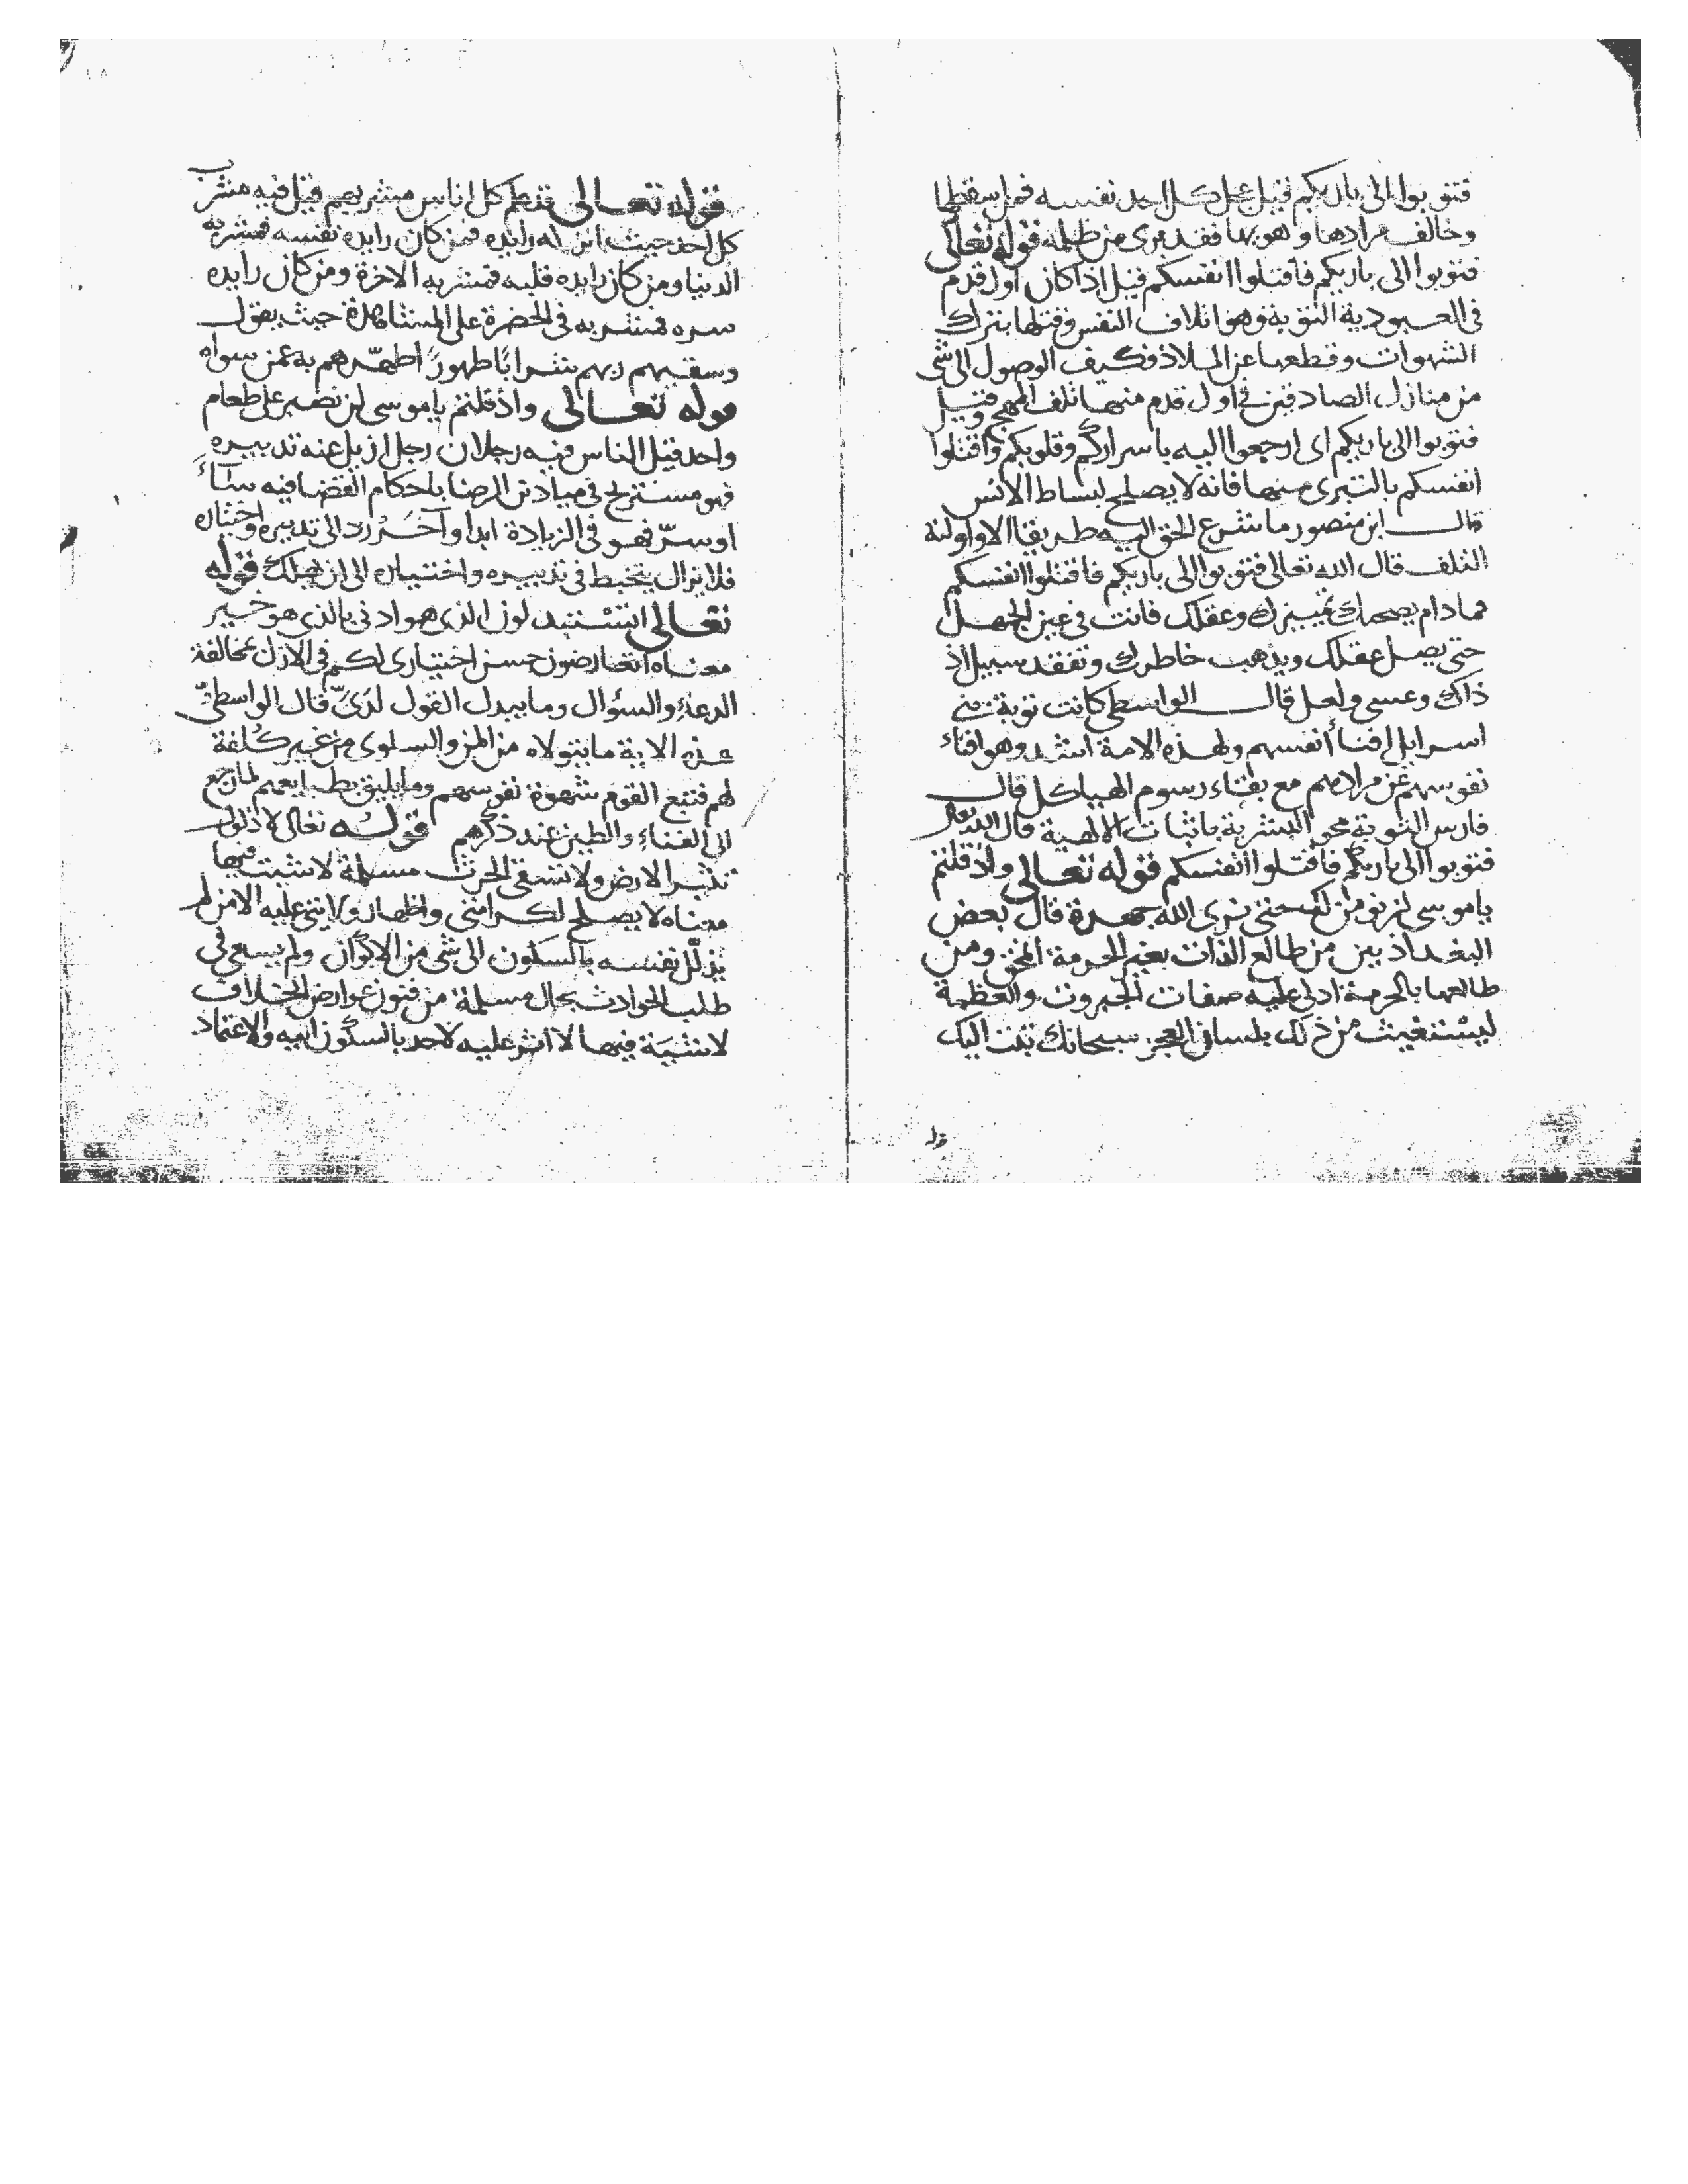 فتوبوا الى باريكم قيل عجل كل احد نفسه فمن اسقطها
وخالف مرادها وهويها فقد برى من ظلمه قوله تعالى
فتوبوا الى باريكم فاقتلوا انفسكم قيل اذا كان اول قدم
فى العبودية التوبة وهو اتلاف النفس وقتلها بترك
الشهوات وقطعها عن الملاذ فكيف الوصول الى شى
من منازل الصادقين فى اول قدم منها تلف المهج وقيل
فتوبوا الى باريكم اى ارجعوا اليه باسراركم وقلوبكم واقتلوا
انفسكم بالتبرى منها فانه لا يصلح لبساط الانس
قال ابن منصور ما شرع الحق اليه طريقا الا واوله
التلف قال الله تعالى فتوبوا الى باريكم فاقتلوا انفسكم
فمادام يصحبك تمييزك وعقلك فانت فى عين الجهل
حتى يضل عقلك ويذهب خاطرك وتفقد سبيل اذ
ذاك وعسى ولعل قال الواسطى كانت توبة بنى
اسرايل افناء أنفسهم ولهذه الامة اشد وهو افناء
نفوسهم عن مرادهم مع بقاء رسوم الهياكل قال
فارس التوبة محو البشرية باثبات الالهية قال الله تعالى
فتوبوا الى باريكم فاقتلوا انفسكم قوله تعالى واذ قلتم
ياموسى لن نومن لك حتى نرى الله جهرة قال بعض
البغداذيين من طالع الذات بغير الحرمة المحق ومن
طالعها بالحرمة ادلى عليه صفات الجبروت والعظمة
ليستغيث من ذلك بلسان العجز سبحانك تبت اليك
قوله تعالى قد علم كل اناس مشربهم قيل فيه مشرب
كل احد حيث انزله رايده فمن كان رايده نفسه فمشربه
الدنيا ومن كان رايده قلبه فمشربه الاخرة ومن كان رايده
سره فمشربه فى الحضرة على المشاهدة حيث يقول
وسقيهم ربهم شرابًا طهورًا طهّرهم به عمن سواه
قوله تعالى واذ قلتم ياموسى لن نصبر على طعام
واحد قيل الناس فيه رجلان رجل ازيل عنه تدبيره
فهو مستريح فى ميادين الرضا باحكام القضا فيه ساءَ
او سرّ فهو فى الزيادة ابدا وآخر رد الى تدبيره واختياره
فلا يزال يتخبط فى تدبيره واختياره الى ان يهلك قوله
تعالى اتستبدلون الذى هو ادنى بالذى هو خير
معناه اتعارضون حسن اختيارى لكم فى الازل بمخالفة
الدعاءِ والسؤال وما يبدل القول لدىّ قال الواسطىّ
هذه الاية ما يتولاه من المن والسلوى من غير كُلفة
لهم فتتبع القوم شهوة نفوسهم وما يليق بطبايعهم لما رجع
الى القثاء والطين عند ذكرهم قوله تعالى لا ذلول
تثير الارض ولا تسقى الحرث مسلمة لا شية فيها
معناه لا يصلح لكرامتى واظهار ولايتى عليه الا من لم
يذلّل نفسه بالسكون الى شى من الاكوان ولم يسعى فى
طلب الحوادث بحال مسلمة من فنون عوارض الخلاف
لا شية فيها لا اثر عليه لاحد بالسكون اليه والاعتماد